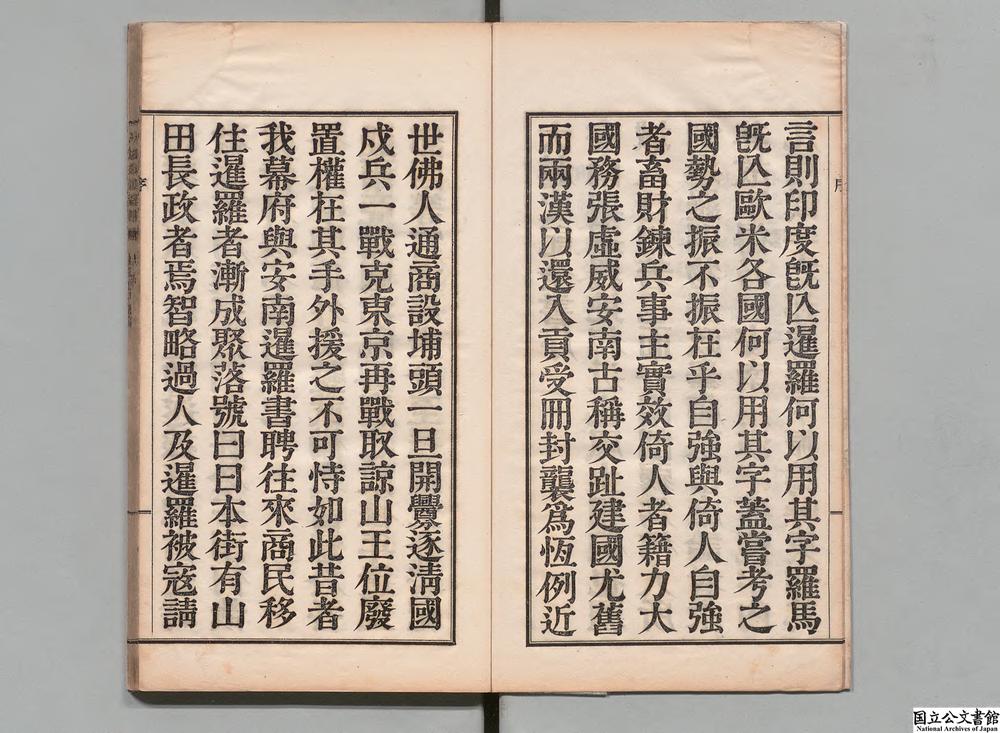 言則印度旣亾暹羅何以用其字羅馬
旣亾歐米各國何以用其字蓋嘗考之
國勢之振不振在乎自強與倚人自強
者畜財鍊兵事主實效倚人者籍力大
國務張虛威安南古稱交趾建國尤舊
而兩漢以還入貢受冊封襲爲恆例近
世佛人通商設埔頭一旦開釁逐淸國
戍兵一戰克東京再戰取諒山王位廢
置權在其手外援之不可恃如此昔者
我幕府與安南暹羅書聘往來商民移
住暹羅者漸成聚落號曰日本街有山
田長政者焉智略過人及暹羅被寇請
序
国立公文書館
National Archives of Japan